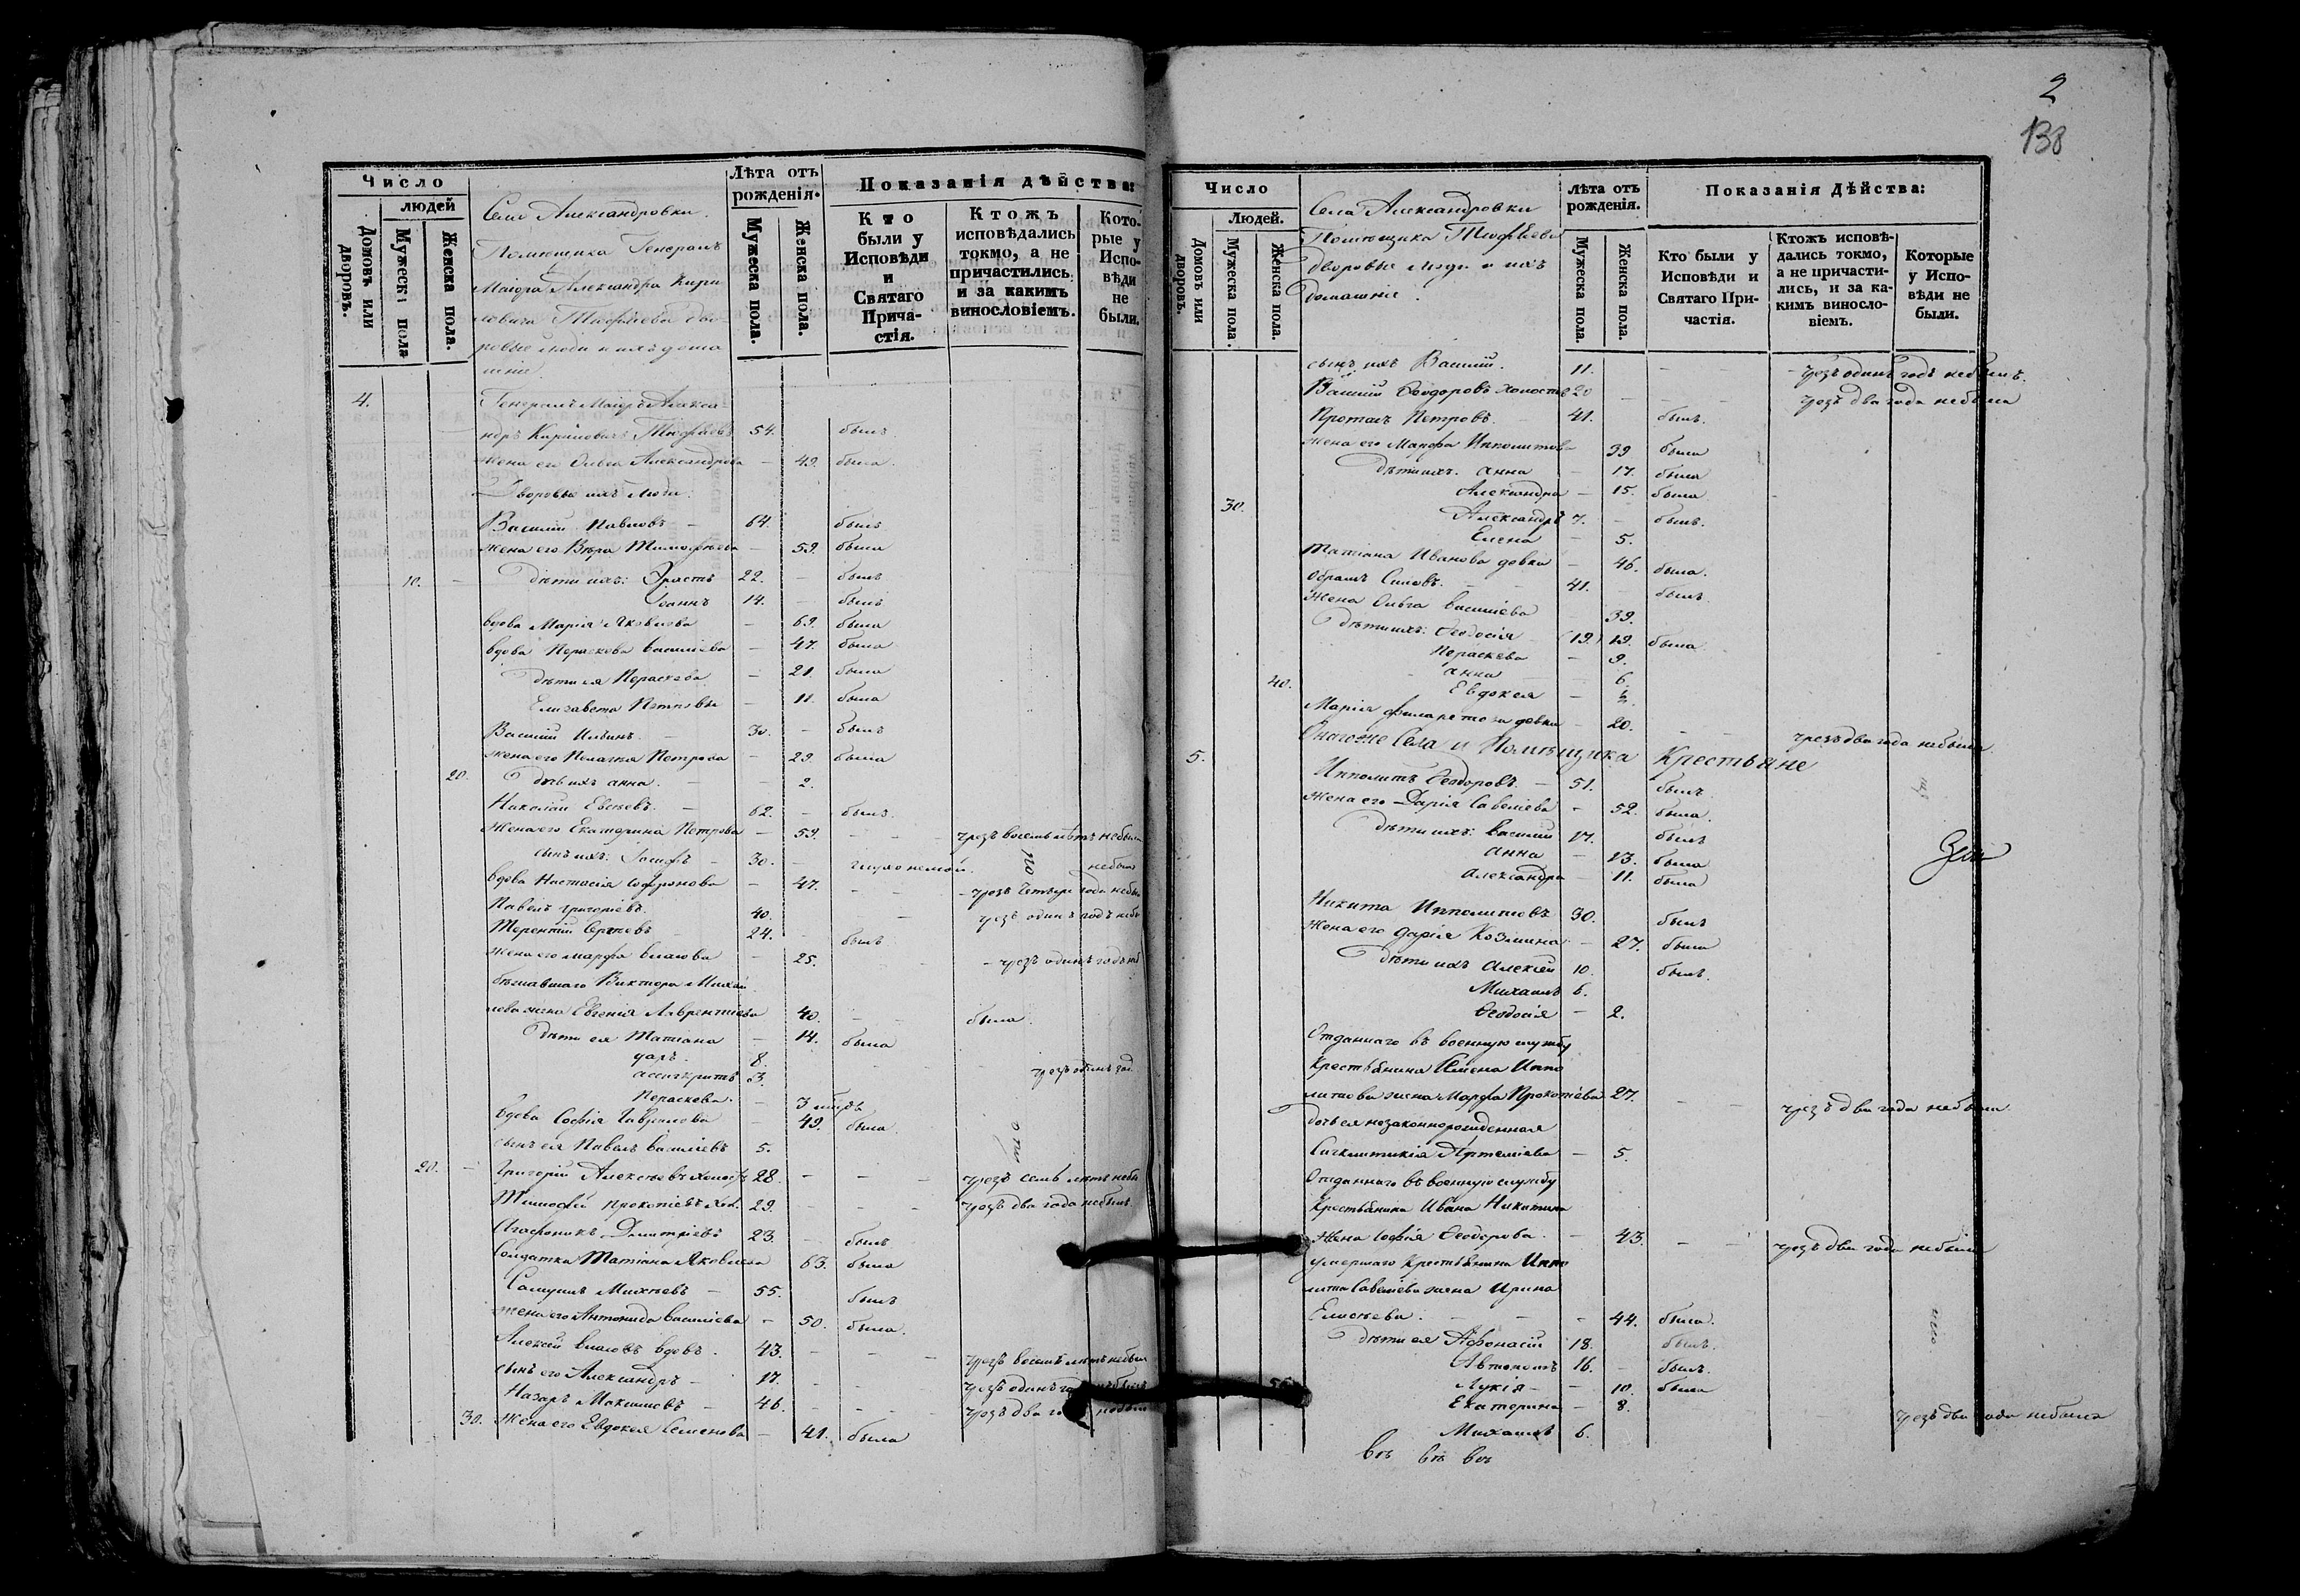 Число
людей
Домовъ или дворовъ.
Мужеска пола
Женска пола.
Села Александровки.
Помѣщика Генералъ
Маіора Александра Кири
ловича Тимофѣева дво-
ровые люди и ихъ дома
шніе.
Лѣта отъ рожденія.
Мужеска пола.
Женска пола.
Показанія дѣйства:
Кто были у Исповѣди и Святаго Прича-стія.
Ктожъ исповѣдались токмо, а не причастились. и за какимъ винословіемъ.
Кото-рые у Испо-вѣди не были.
4. Генералъ Маіоръ Алекса-
ндръ Кириловичъ 54. былъ
жена его Ольга Александрова - 49. была.
Дворовые ихъ люди.
Василій Павловъ - 64. былъ
жена его Вѣра Тимофѣева - 59. была
10. - дѣти ихъ: Эрастъ 22. - былъ
Іоаннъ 14. - былъ
вдова Марія Яковлева - 69. была
вдова Параскева Василіева - 47. была
дѣти ея Параскева - 21. была
Елизавета - 11. была
Василій Ильинъ - 30. - былъ
жена его Пелагія Петрова - 29. была
20. дочь ихъ анна. - - 2.
Николай Евсѣевъ. - 62. - былъ.
жена его Екатерина Петрова - 59. - - чрезъ восемь лѣтъ небыла
сынъ ихъ: Іосифъ - 30. - глухонемой. небылъ
вдова Настасія Софронова - 47. - - - чрезъ четыре года небы
Павелъ Григоріевъ. 40. - чрезъ одинъ годъ небы
Терентій Сергѣевъ - 24. - былъ
жена его марфа власова - 25. - - чрезъ одинъ годъ неб
бѣжавшаго Виктора Михай
лова жена Евгенія Лаврентіева 40. - - была.
дѣти ея Татіана - 14. была
уаръ. 8.
асигкритъ 3. - - - чрезъ одинъ год
Параскева. - 3 мѣсяца
вдова Софія Гаврилова - 49. была.
сынъ ея Павелъ василіевъ 5.
20. - Григорій Алексѣевъ холостъ 28. - - - чрезъ семь лѣтъ небы
Тимофей прокопіевъ хол. 29. - - - чрезъ два года небылъ
Агафоникъ Дмитріевъ 23. - былъ
Солдатка Татіана Яковлева 63. была
Самуилъ Михѣевъ - 55. былъ
жена его Антонида Василіева - 50. была.
Алексѣй власовъ вдовъ. 43. - - - чрезъ восемь лѣтъ небыл
сынъ его Александръ - 17. - - чрезъ одинъ годъ небылъ
Назаръ Максимовъ - 46. - - - чрезъ два го
30. жена его Евдокея Семенова - 41. была
2
138
Число
Людей.
Домовъ или дворовъ.
Мужеска пола.
Женска пола.
Села Александровки
Помѣщика
дворовые люди и ихъ
домашніе.
Лѣта отъ рожденія.
Мужеска пола.
Женска пола.
Показанія Дѣйства:
Кто были у Исповѣди и Святаго При-частія.
Ктожъ исповѣ-дались токмо, а не причасти-лись, и за ка-кимъ виносло-віемъ.
Которые у Испо-вѣди не были.
сынъ ихъ Василій. 11. - - чрезъ одинъ годъ небылъ.
Василій Ѳеодоровъ холостъ 20 - - - чрезъ два года небыла
Петровъ. - 41. былъ.
жена его Марфа Ипполитова 39 была
дѣти ихъ. анна - 17. была
Александра - 15. была
30. Александръ 7. - былъ.
Елена - 5.
Татіана Иванова девка - 46. была.
Силовъ. - - 41. былъ
жена Ольга Василіева 39.
дѣти ихъ: Ѳеодосія (19.) 19. была
Параскева - 9.
анна 6.
40. Евдокея -
Марія филаретова девка - 20. - - чрезъ два года небыла.
5. Онагоже Села и Помѣщика Крестьяне
Ипполитъ Ѳеодоровъ. - 51. былъ
жена его Дарія Савеліева - 52. была.
дѣти ихъ: Василій 17. былъ
анна - 13. была
александра - 11. была
Никита Ипполитовъ 30. былъ
жена его дарія Козмина - 27. была
дѣти ихъ алексѣй 10. былъ.
Михаилъ 6.
Ѳеодосія - 2.
Отданнаго въ военную службу
крестьянина Семена Иппо
литова жена Марфа Прокопіева 27. - - чрезъ два года небыла.
дочь ея незаконнорожденная
Сигклитикія Артеміева - 5.
Отданнаго въ военную службу
крестьянина Ивана Никитина
жена софія Ѳеодорова. - 43. - - чрезъ два года небыла
умершаго крестьянина Иппо
лита Савеліева жена Ирина
Елисѣева. - - - 44. была.
дѣти ея Афонасій 18. былъ.
Автономъ 16. - былъ.
Лукія - - 10. была
Екатерина - 8. чрезъ два года небыла
Михаилъ 6.